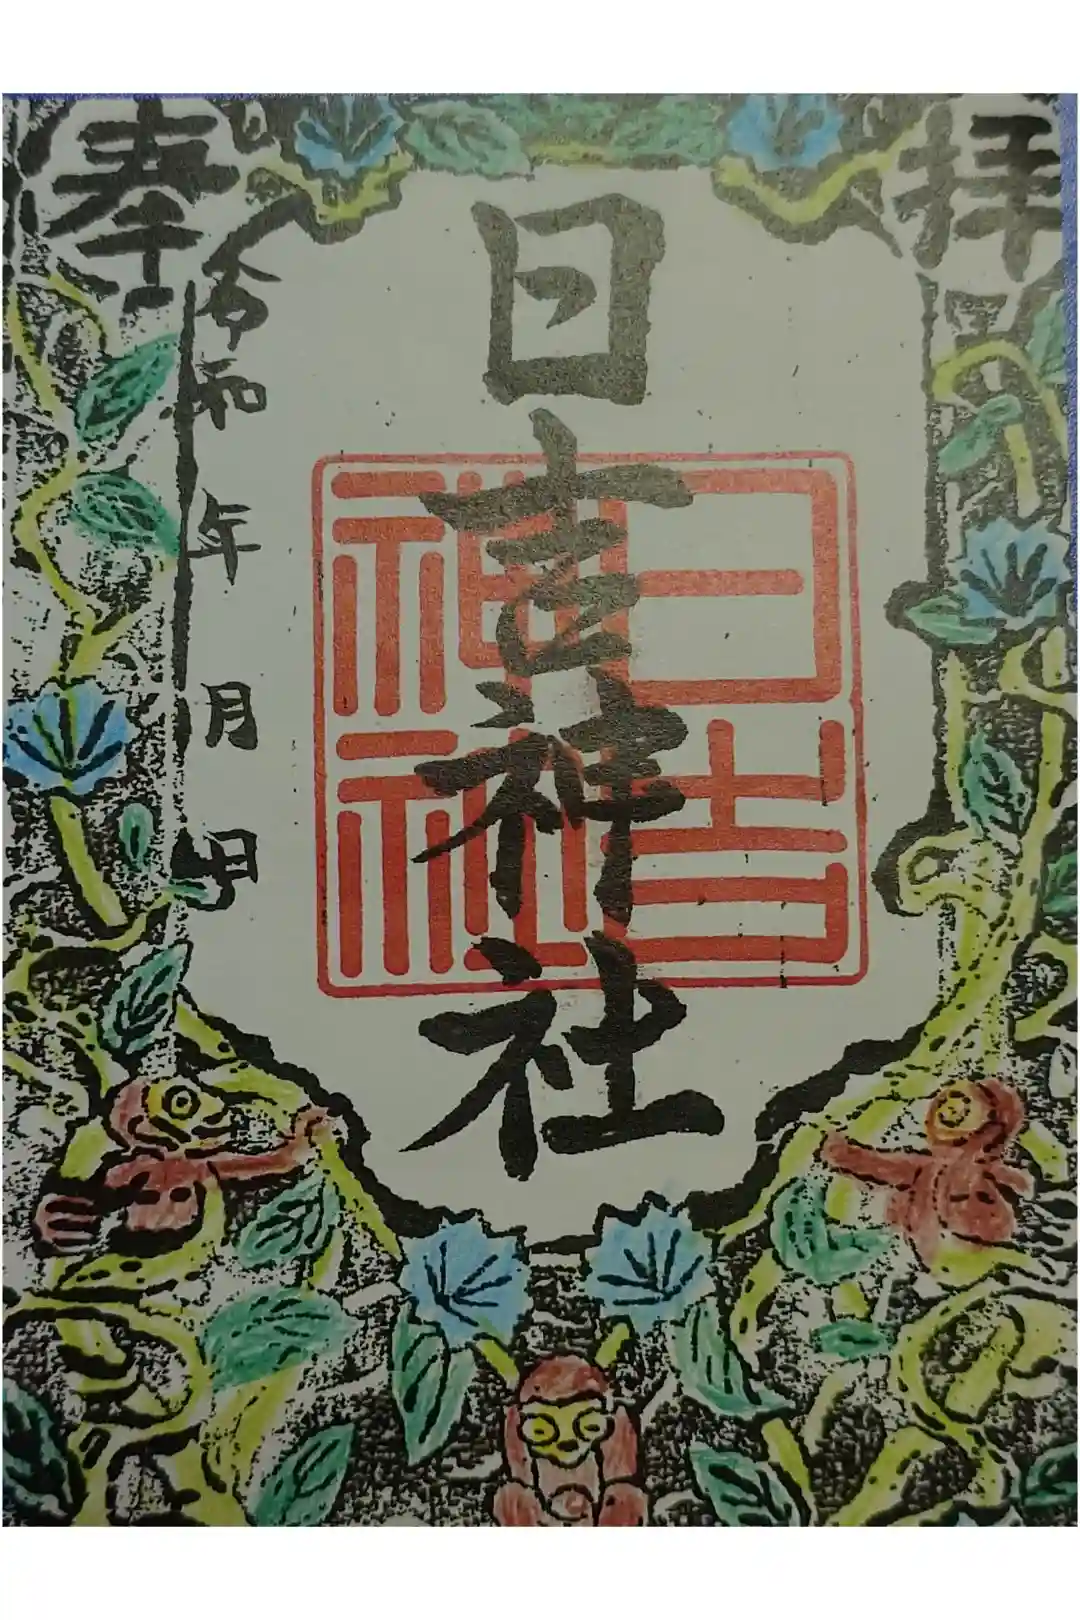 奉
拝
日吉神社
日吉
神社
令和 年 月 日